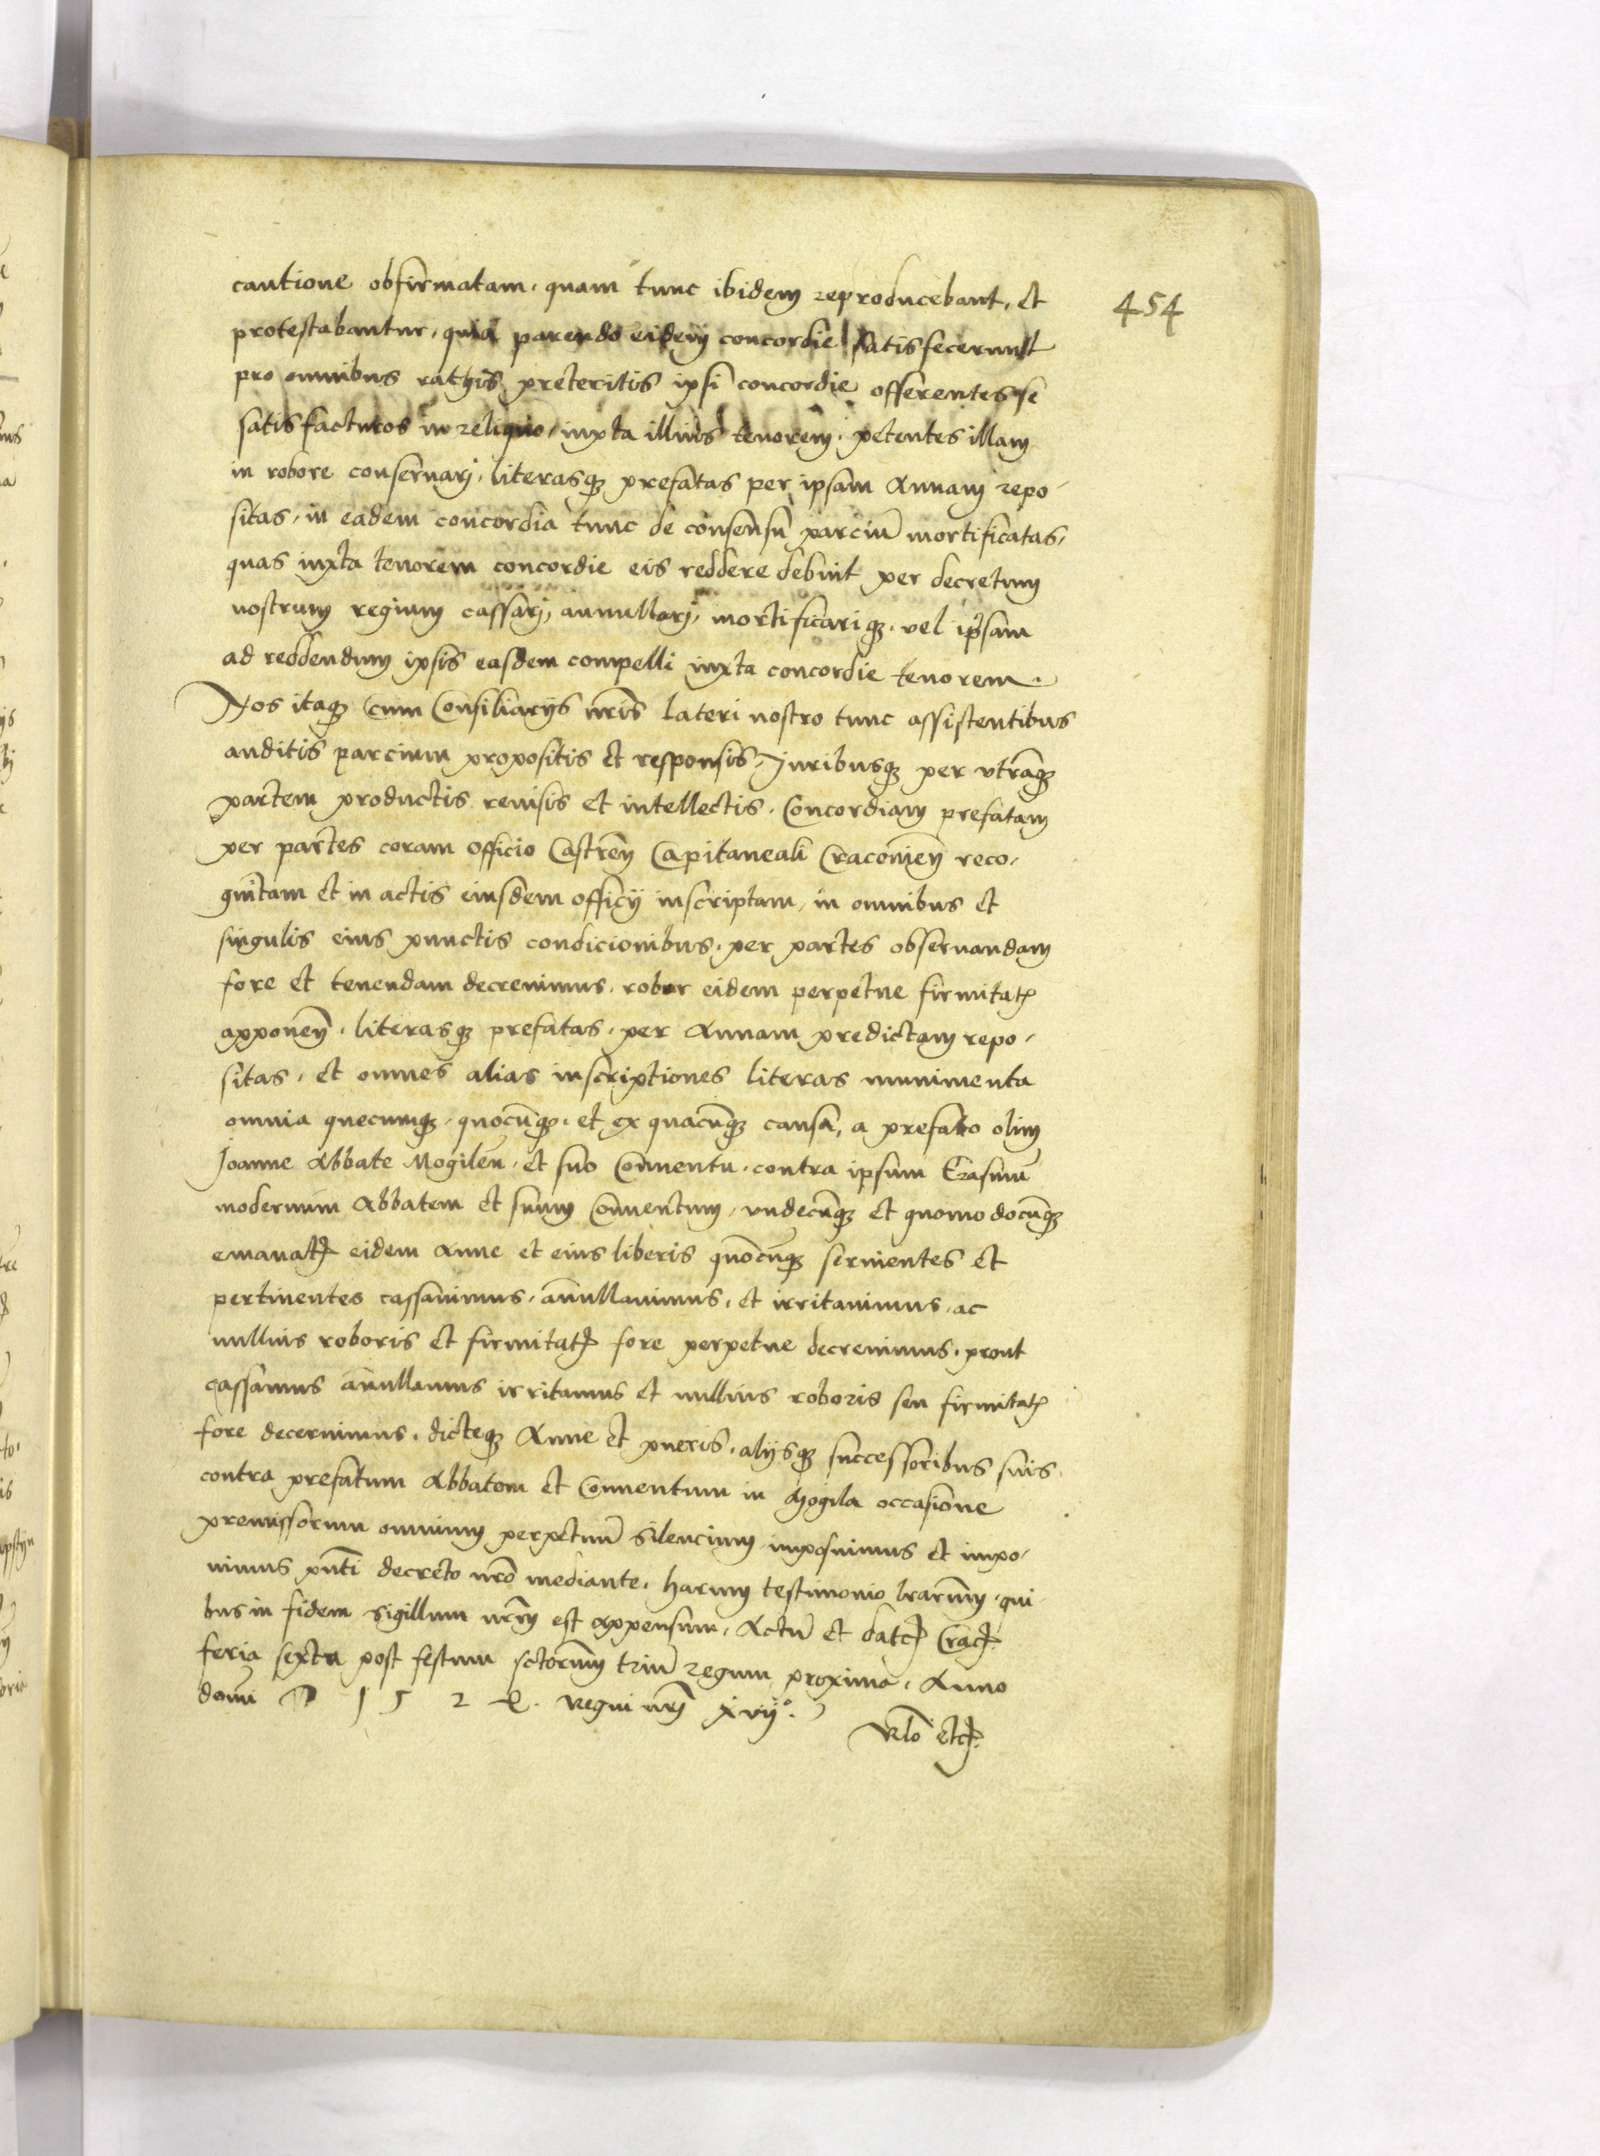 454
cautione obfirmatam, quam tunc ibidem reproducebant, et
protestabantur, quia parendo eidem concordie satisfecerunt
pro omnibus rathis preteritis ipsi concordie offerentes se
satisfacturos in reliquo, iuxta illius tenorem. petentes illam
in robore conseruarj, literasqȝ prefatas per ipsam Annam repo-
sitas, in eadem concordia tunc de consensu parciu͂ mortificatas,
quas iuxta tenorem concordie eis reddere debuit per decretum
nostrum regium cassarj, annullarj, mortificariqȝ, vel ipsam
ad reddendum ipsis easdem compelli iuxta concordie tenorem.
Nos itaqȝ cum Consiliarijs nr͂is lateri nostro tunc assistentibus
auditis parcium propositis et responsis, Juribusqȝ per vtra͂qȝ
partem productis reuisis et intellectis, Concordiam prefatam
per partes coram officio Castren͂ Capitaneali Cracouien͂ reco-
gnitam et in actis eiusdem officij inscriptam, in omnibus et
singulis eius punctis condicionibus, per partes obseruandam
fore et tenendam decreuimus, robur eidem perpetue firmitatꝭ
apponen͂. literasqȝ prefatas, per Annam predictam repo-
sitas, et omnes alias inscriptiones literas munimenta
omnia quecumqȝ, quocu͂qȝ, et ex quacu͂qȝ causa, a prefato olim
Joanne Abbate Mogilen͂ et suo Co͂nuentu, contra ipsum Erasmu͂
modernum Abbatem et suum Co͂nuentum, vndecu͂qȝ et quomodocu͂qȝ
emanatꝭ eidem Anne et eius liberis quocu͂qȝ seruientes et
pertinentes cassauimus, an͂ullauimus, et irritauimus, ac
nullius roboris et firmitatꝭ fore perpetue decreuimus, prout
cassamus an͂ullamus irritamus et nullius roboris seu firmitatꝭ
fore decernimus, dicteqȝ Anne et pueris, alijsqȝ successoribus suis
contra prefatum Abbatem et Conuentum in Mogila occasione
premissorum omnium perpetuu͂ silencium imposuimus et impo-
nimus pn͂ti decreto nr͂o mediante, harum testimonio l͂rarum, qui-
bus in fidem sigillum nr͂m est appensum, Actu͂ et datꝭ Cracꝭ
feria sexta post festum sctorum triu͂ regum proxima, Anno
domi͂ regni nr͂j xvijº.
Rl͂o etcꝭ.